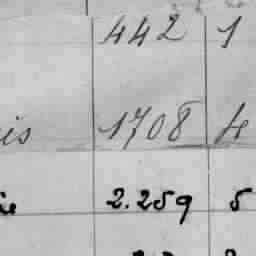 442 1
is 1708 4
ie 2.259 5